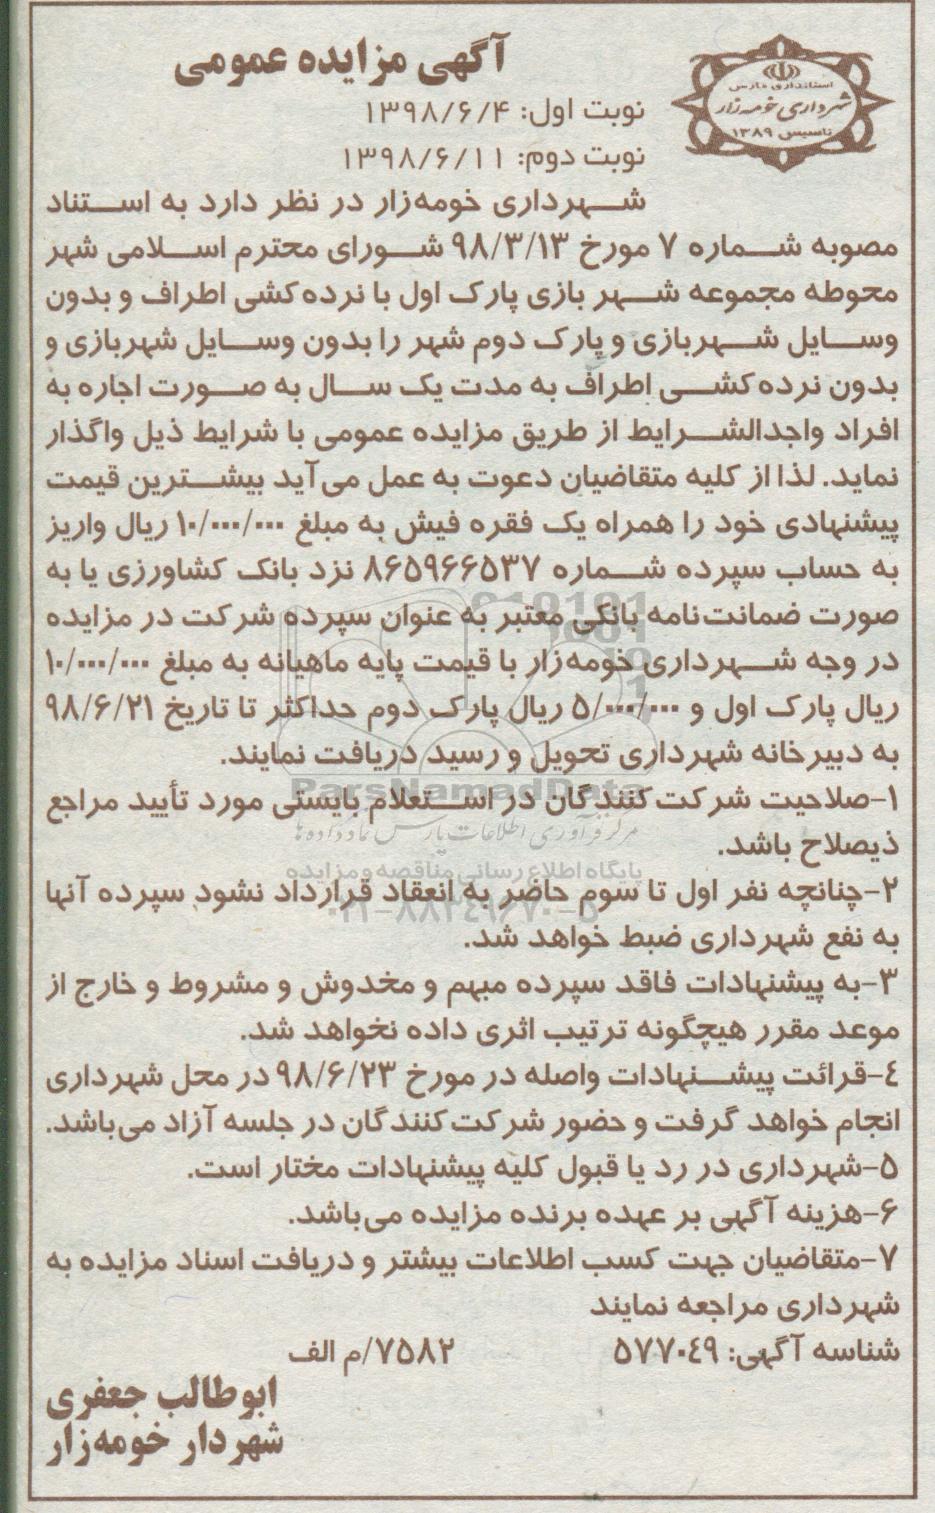 آگهی مزایده عمومی
استانداری فارس
شهرداری خومه‌زار
تاسیس ۱۳۸۹
نوبت اول: ۱۳۹۸/۶/۴
نوبت دوم: ۱۳۹۸/۶/۱۱
شهرداری خومه‌زار در نظر دارد به استناد
مصوبه شماره ۷ مورخ ۹۸/۳/۱۳ شورای محترم اسلامی شهر
محوطه مجموعه شهر بازی پارک اول با نرده‌کشی اطراف و بدون
وسایل شهربازی و پارک دوم شهر را بدون وسایل شهربازی و
بدون نرده‌کشی اطراف به مدت یک سال به صورت اجاره به
افراد واجدالشرایط از طریق مزایده عمومی با شرایط ذیل واگذار
نماید. لذا از کلیه متقاضیان دعوت به عمل می‌آید بیشترین قیمت
پیشنهادی خود را همراه یک فقره فیش به مبلغ ۱۰/۰۰۰/۰۰۰ ریال واریز
به حساب سپرده شماره ۸۶۵۹۶۶۵۳۷ نزد بانک کشاورزی یا به
صورت ضمانت‌نامه بانکی معتبر به عنوان سپرده شرکت در مزایده
در وجه شهرداری خومه‌زار با قیمت پایه ماهیانه به مبلغ ۱۰/۰۰۰/۰۰۰
ریال پارک اول و ۵/۰۰۰/۰۰۰ ریال پارک دوم حداکثر تا تاریخ ۹۸/۶/۲۱
به دبیرخانه شهرداری تحویل و رسید دریافت نمایند.
ParsNamadData
۱-صلاحیت شرکت‌کنندگان در استعلام بایستی مورد تأیید مراجع
مرکز فرآوری اطلاعات پارس نماد داده‌ها
ذیصلاح باشد.
پایگاه اطلاع رسانی مناقصه و مزایده
۲-چنانچه نفر اول تا سوم حاضر به انعقاد قرارداد نشود سپرده آنها
۰۲۱-۸۸۳۴۹۶۷۰-۵
به نفع شهرداری ضبط خواهد شد.
۳-به پیشنهادات فاقد سپرده مبهم و مخدوش و مشروط و خارج از
موعد مقرر هیچگونه ترتیب اثری داده نخواهد شد.
۴-قرائت پیشنهادات واصله در مورخ ۹۸/۶/۲۳ در محل شهرداری
انجام خواهد گرفت و حضور شرکت‌کنندگان در جلسه آزاد می‌باشد.
۵-شهرداری در رد یا قبول کلیه پیشنهادات مختار است.
۶-هزینه آگهی بر عهده برنده مزایده می‌باشد.
۷-متقاضیان جهت کسب اطلاعات بیشتر و دریافت اسناد مزایده به
شهرداری مراجعه نمایند
شناسه آگهی: ۵۷۷۰۴۹ ۷۵۸۲/م الف
ابوطالب جعفری
شهردار خومه‌زار